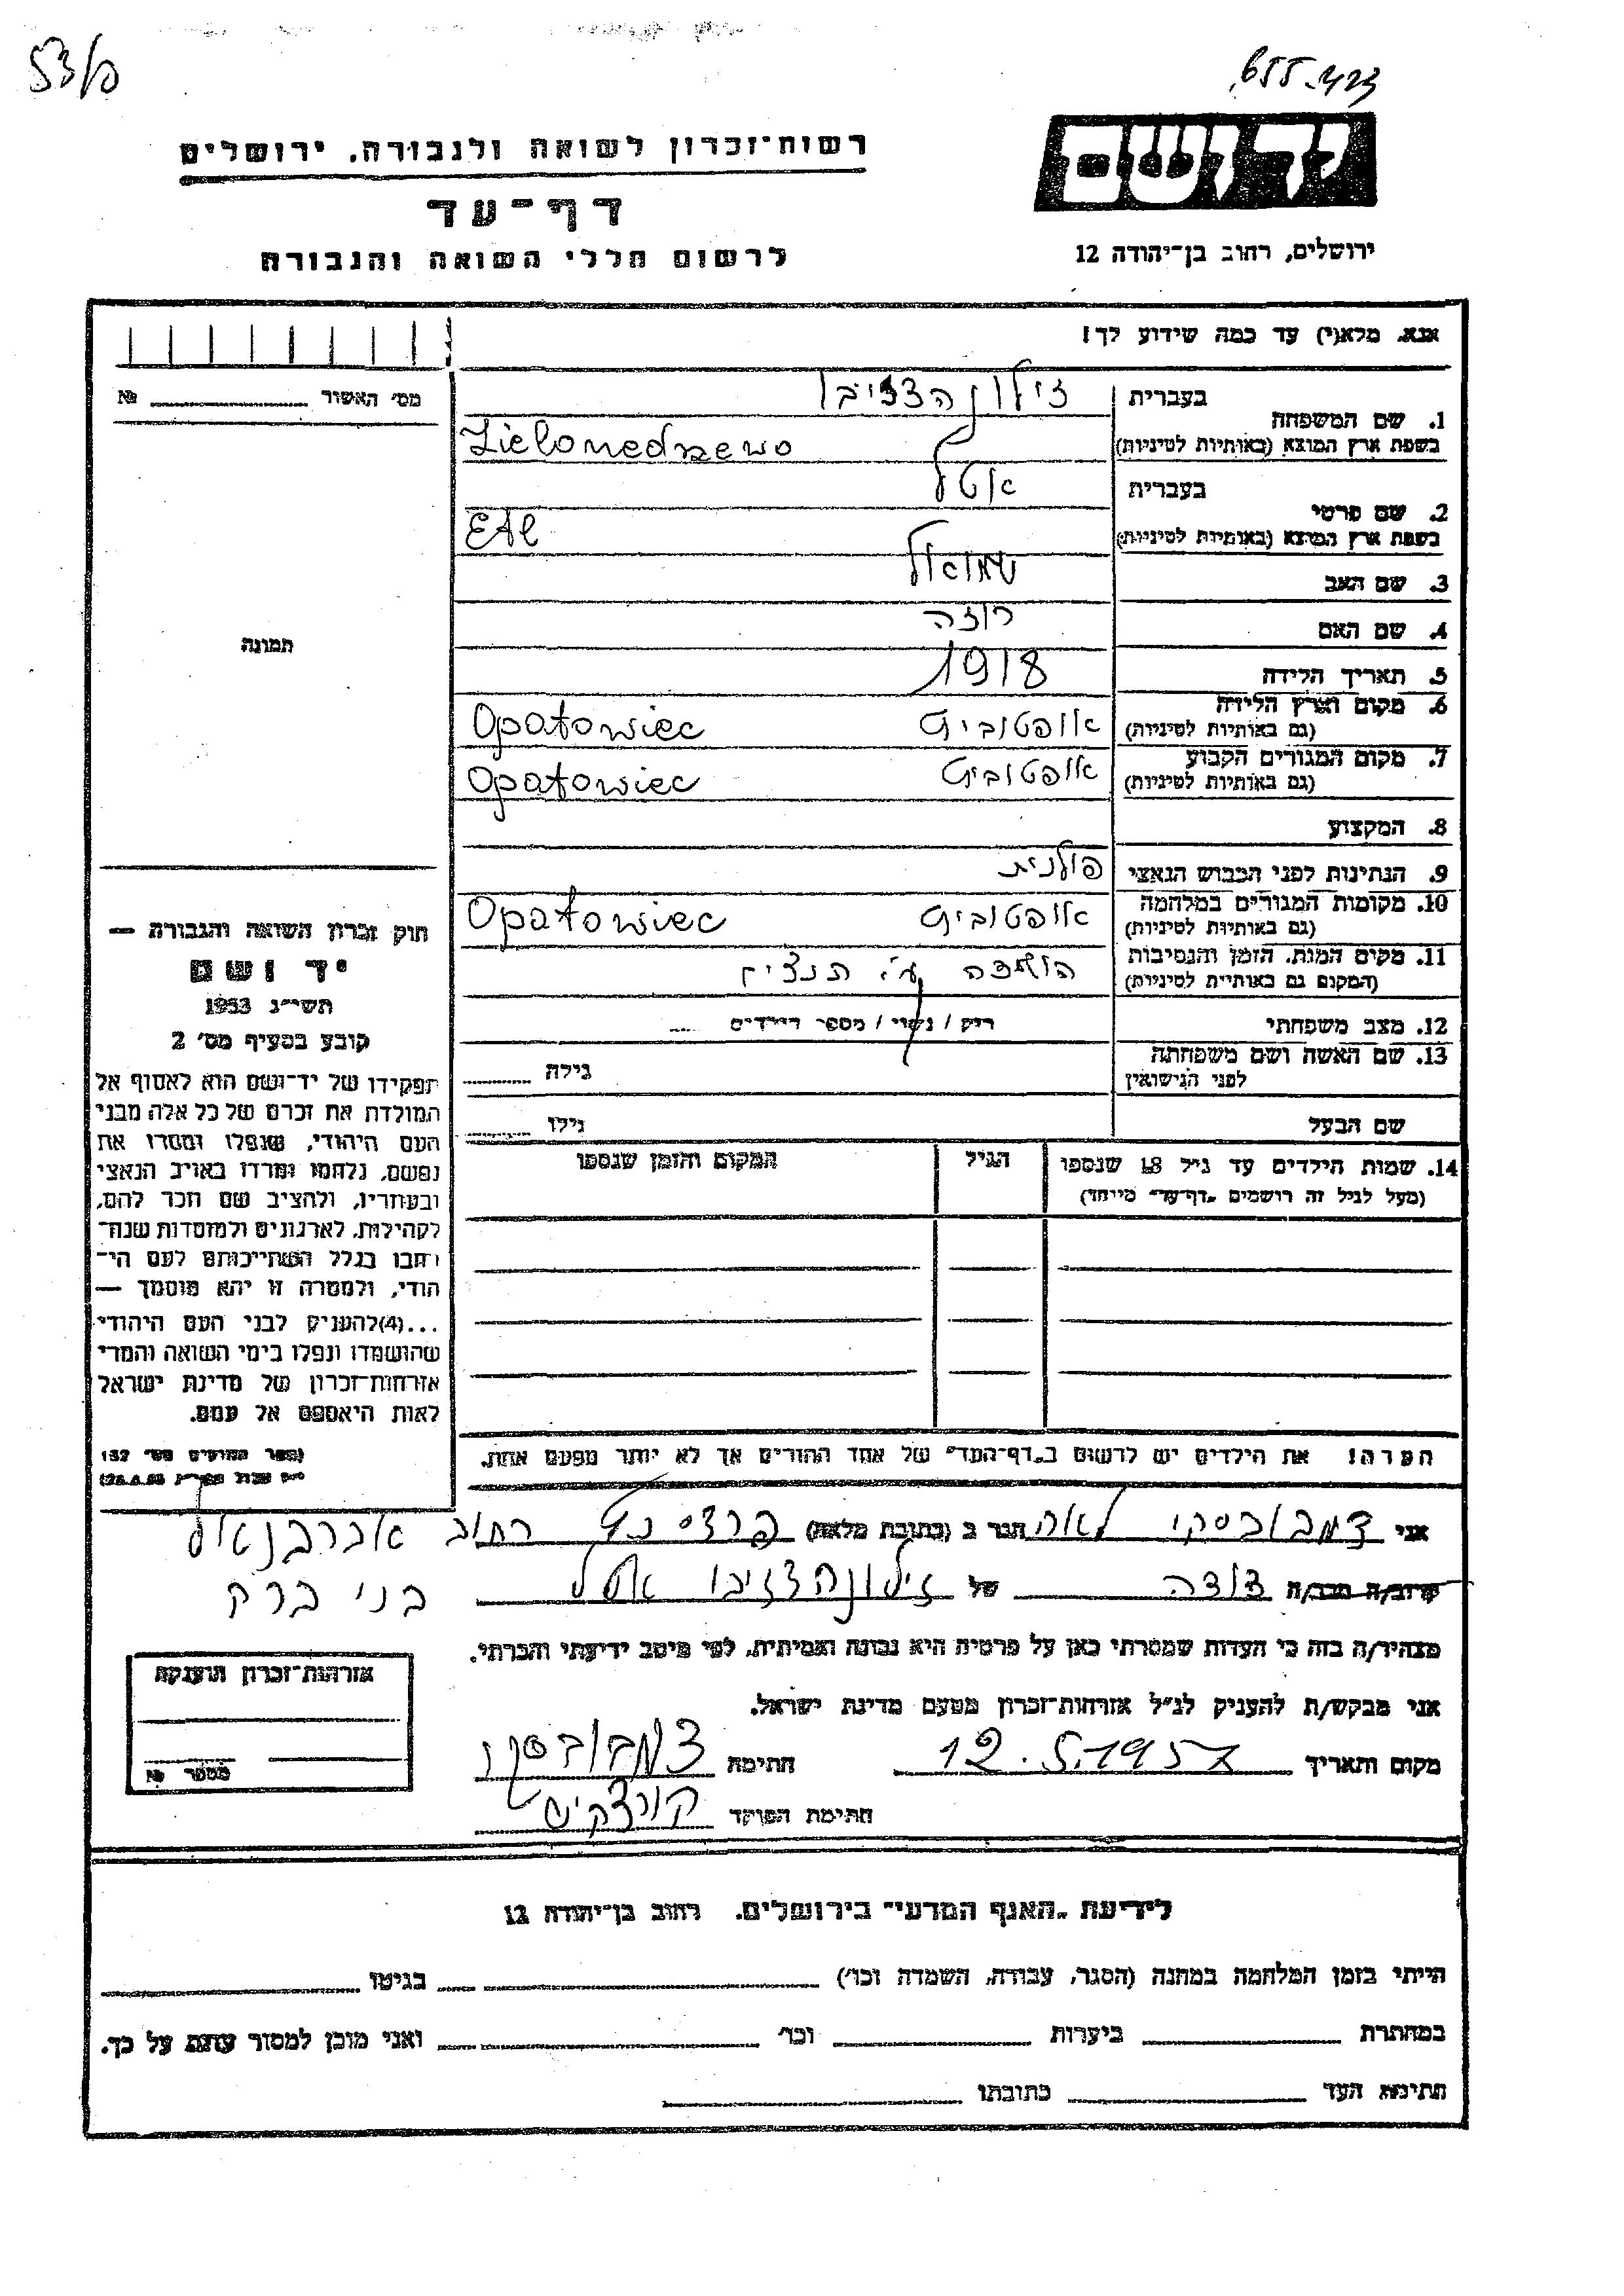 53/ס
655.423
יד ושם
ירושלים, רחוב בן־יהודה 12
רשות־זכרון לשואה ולגבורה, ירושלים
דף־עד
לרשום חללי השואה והגבורה
אנא, מלא(י) עד כמה שידוע לך!
מס׳ האשור № 
תמונה
1. שם המשפחה
בעברית זילונהדזיבו
בשפת ארץ המוצא (באותיות לטיניות) Zielonedrzewo
2. שם פרטי
בעברית אטל
בשפת ארץ המוצא (באותיות לטיניות) Etl
3. שם האב שמואל
4. שם האם רוזה
5. תאריך הלידה 1918
6. מקום וארץ הלידה
(גם באותיות לטיניות) אופטוביץ Opatowiec
7. מקום המגורים הקבוע
(גם באותיות לטיניות) אופטוביץ Opatowiec
8. המקצוע
9. הנתינות לפני הכבוש הנאצי פולנית
10. מקומות המגורים במלחמה
(גם באותיות לטיניות) אופטוביץ Opatowiec
11. מקום המות, הזמן והנסיבות
(המקום גם באותיות לטיניות) הושמדה ע״י הנאצים
12. מצב משפחתי רוק / נשוי / מספר הילדים
13. שם האשה ושם משפחתה
לפני הנישואין גילה
שם הבעל גילו
14. שמות הילדים עד גיל 18 שנספו הגיל המקום והזמן שנספו
(מעל לגיל זה רושמים ״דף־עד״ מיוחד)
הערה! את הילדים יש לרשום ב״דף־העד״ של אחד ההורים אך לא יותר מפעם אחת.
חוק זכרון השואה והגבורה —
יד ושם
תשי״ג 1953
קובע בסעיף מס׳ 2
תפקידו של יד־ושם הוא לאסוף אל
המולדת את זכרם של כל אלה מבני
העם היהודי, שנפלו ומסרו את
נפשם, נלחמו ומרדו באויב הנאצי
ובעוזריו, ולהציב שם וזכר להם,
לקהילות, לארגונים ולמוסדות שנח־
רבו בגלל השתייכותם לעם הי־
הודי, ולמטרה זו יהא מוסמך —
...(4)להעניק לבני העם היהודי
שהושמדו ונפלו בימי השואה והמרי
אזרחות־זכרון של מדינת ישראל
לאות היאספם אל עמם.
(ספר החוקים מס׳ 132
אני דמבובסקי לאה הגר ב (כתובת מלאה) פרדס כץ רחוב אברבנאל
בני ברק
קרוב/ה מכר/ה דודה של זילונהדזיבו אטל
מצהיר/ה בזה כי העדות שמסרתי כאן על פרטיה היא נכונה ואמיתית, לפי מיטב ידיעתי והכרתי.
אני מבקש/ת להעניק לנ״ל אזרחות־זכרון מטעם מדינת ישראל.
מקום ותאריך 12.5.1957 חתימה דמבובסקי
חתימת הפוקד
אזרחות־זכרון הוענקה
מספר №
לידיעת ״האגף המדעי״ בירושלים. רחוב בן־יהודה 12
הייתי בזמן המלחמה במחנה (הסגר, עבודה, השמדה וכו׳) בגיטו
במחתרת ביערות וכו׳ ואני מוכן למסור עדות על כך.
חתימת העד כתובתו